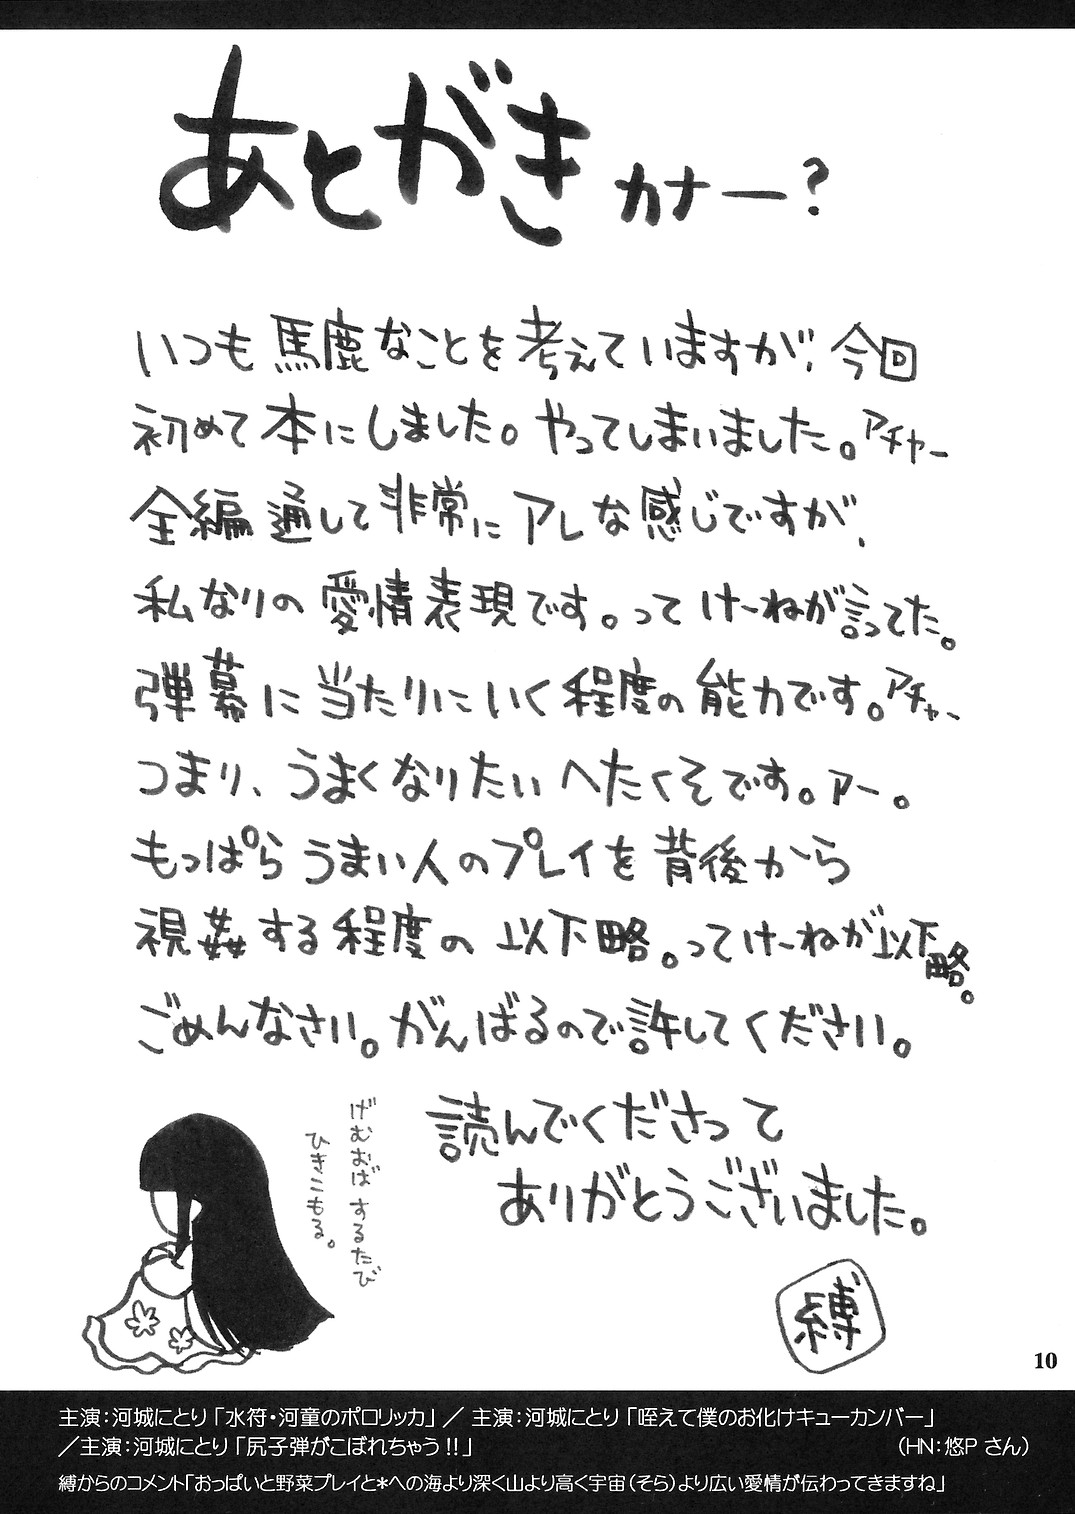 あとがき カナー?
いつも馬鹿なことを考えていますが、今回
初めて本にしました。やってしまいました。アチャー
全編通して非常にアレな感じですが、
私なりの愛情表現です。ってけーねが言ってた。
弾幕に当たりにいく程度の能力です。アチャー
つまり、うまくなりたいへたくそです。アー。
もっぱらうまい人のプレイを背後から
視姦する程度の以下略。ってけーねが以下略。
ごめんなさい。がんばるので許してください。
読んでくださって
ありがとうございました。
げむおばするたび
ひきこもる。
縛
10
主演:河城にとり「水符・河童のポロリッカ」／ 主演:河城にとり「咥えて僕のお化けキューカンバー」
／主演:河城にとり「尻子弾がこぼれちゃう!!」 (HN:悠P さん)
縛からのコメント「おっぱいと野菜プレイと*への海より深く山より高く宇宙(そら)より広い愛情が伝わってきますね」